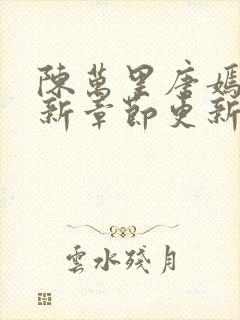 陳萬里唐嫣
新章節更新
雲水殘月